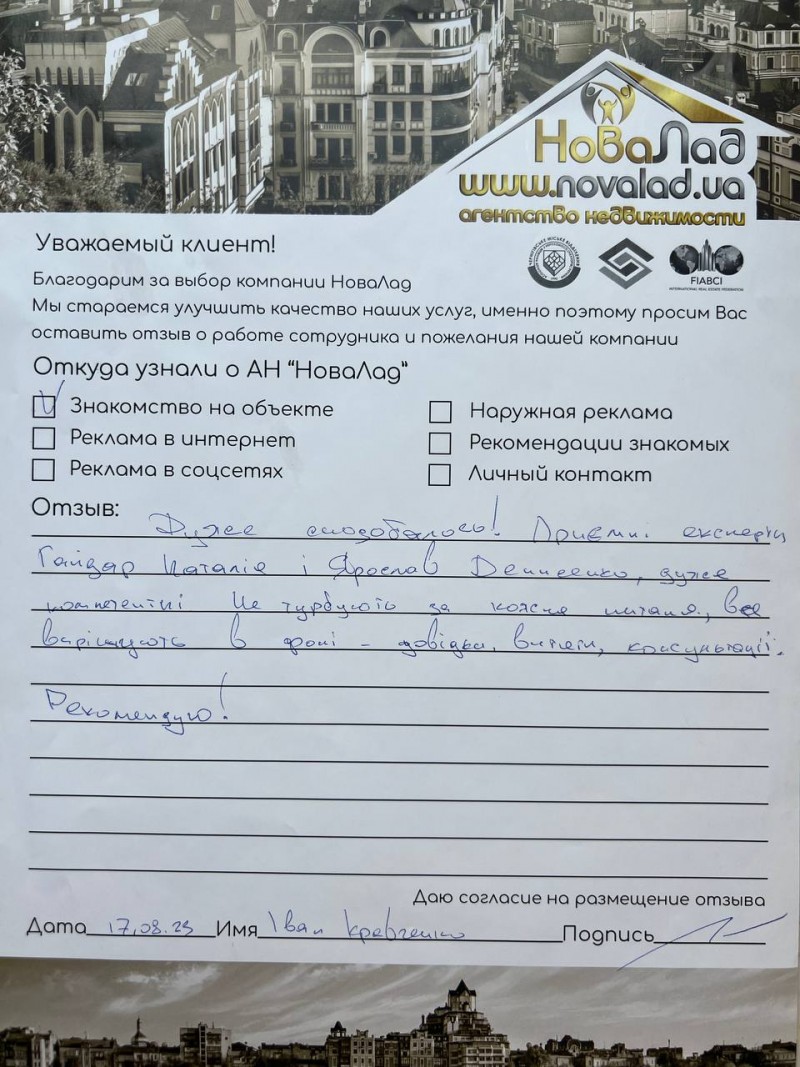 НоваЛад
www.novalad.ua
агентство недвижимости
Уважаемый клиент!
FIABCI
INTERNATIONAL REAL ESTATE FEDERATION
Благодарим за выбор компании НоваЛад
Мы стараемся улучшить качество наших услуг, именно поэтому просим Вас
оставить отзыв о работе сотрудника и пожелания нашей компании
Откуда узнали о АН "НоваЛад"
V Знакомство на объекте
Реклама в интернет
Реклама в соцсетях
Наружная реклама
Рекомендации знакомых
Личный контакт
Отзыв:
Дуже сподобалось! Приємні експерти
Гайдар Наталія і Ярослав Денисенко, дуже
компетентні Не турбують за кожне питання, все
вирішують в фоні - довідки, витяги, консультації.
Рекомендую!
Даю согласие на размещение отзыва
Дата 17,08.23 Имя Іван Кравченко Подпись